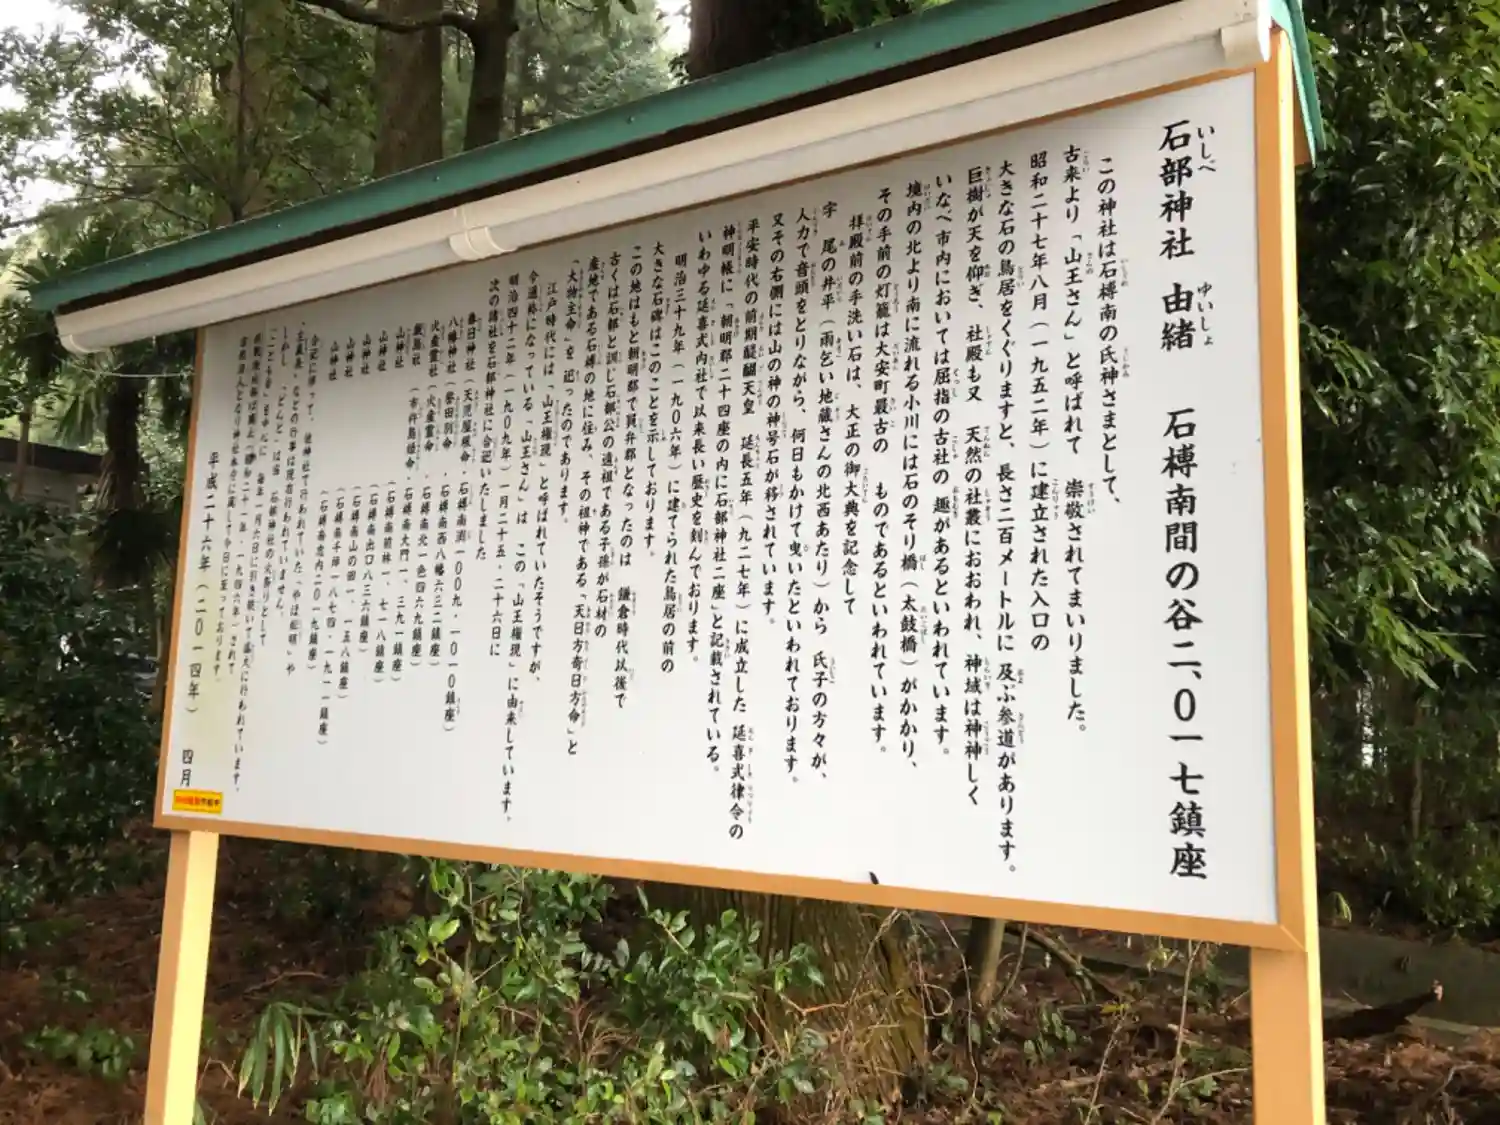 石部神社 由緒 石榑南間の谷二、0一七鎮座
この神社は石榑南の氏神さまとして、
古来より「山王さん」と呼ばれて 崇敬されてまいりました。
昭和二十七年八月(一九五二年)に建立された入口の
大きな石の鳥居をくぐりますと、長さ二百メートルに 及ぶ参道があります。
巨樹が天を仰ぎ、社殿も又 天然の社叢におおわれ、神域は神神しく
いなべ市内においては屈指の古社の 趣があるといわれています。
境内の北より南に流れる小川には石のそり橋(太鼓橋)がかかり、
その手前の灯籠は大安町最古の ものであるといわれています。
拝殿前の手洗い石は、大正の御大典を記念して
字 尾の井平(雨乞い地蔵さんの北西あたり)から 氏子の方々が、
人力で音頭をとりながら、何日もかけて曳いたといわれております。
又その右側には山の神の神号石が移されています。
平安時代の前期醍醐天皇 延長五年(九二七年)に成立した 延喜式律令の
神明帳に「朝明郡二十四座の内に石部神社二座」と記載されている。
いわゆる延喜式内社で以来長い歴史を刻んでおります。
明治三十九年(一九0六年)に建てられた鳥居の前の
大きな石碑はこのことを示しております。
この地はもと朝明郡で員弁郡となったのは 鎌倉時代以後で
古くは石部と訓じ石部公の遠祖である子孫が石材の
産地である石榑の地に住み、その祖神である「天日方奇日方命」と
「大物主命」を 祀ったのであります。
江戸時代には「山王権現」と呼ばれていたそうですが、
今通称になっている「山王さん」は この「山王権現」に由来しています。
明治四十二年(一九0九年)一月二十五・二十六日に
次の諸社を石部神社に合祀いたしました
春日神社(天児屋根命・石榑南渕一00九・一0一0鎮座)
八幡神社(誉田別命・石榑南西八幡六三二鎮座)
火産霊社(火産霊命・石榑南北一色四六九鎮座)
厳島社(市杵島姫命・石榑南大門一、三九一鎮座)
山神社(石榑南前林一、七一八鎮座)
山神社(石榑南出口八三六鎮座)
山神社(石榑南山の田一、一五八鎮座)
山神社(石榑南千坪一八七四・一九一一鎮座)
山神社(石榑南志内二0一九鎮座)
合祀に伴って、彼神社で行われていた「やぼ松明」や
しかし 「どんど」は 石部神社の火祭りとして
毎年一月六日に引き続いて盛大に行われています。
平成二十六年(二0一四年) 四月